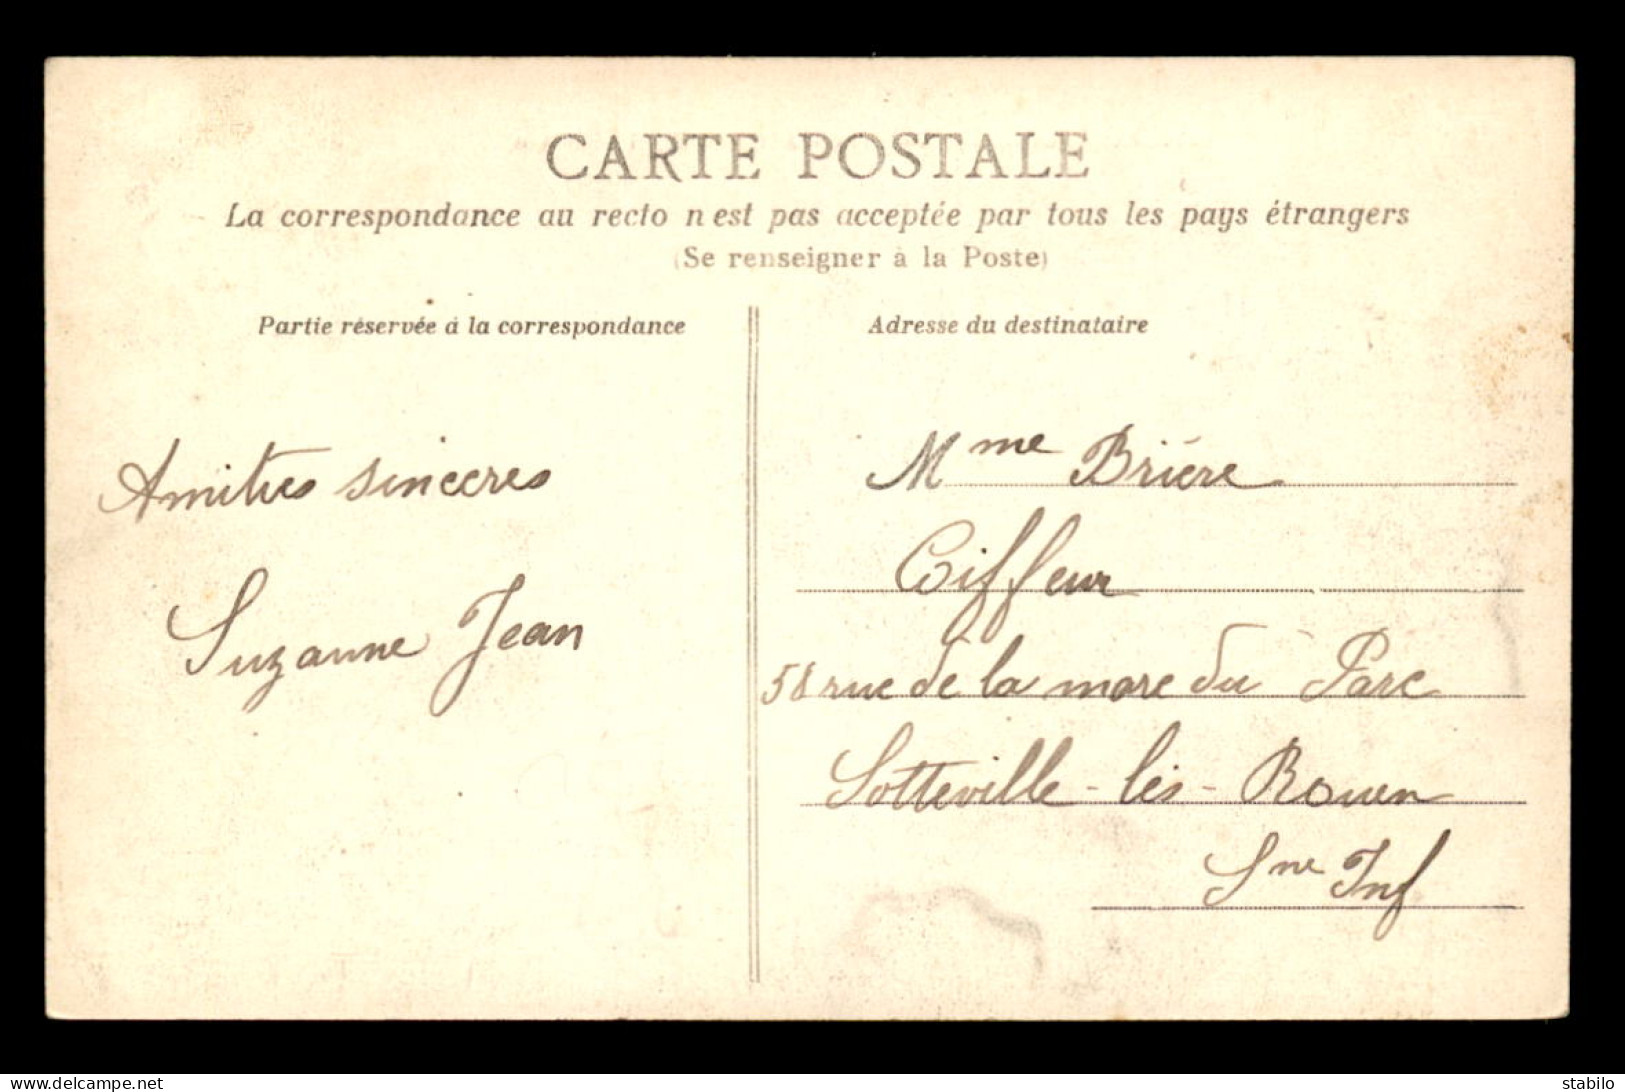 CARTE POSTALE
La correspondance au recto n'est pas acceptée par tous les pays étrangers
(Se renseigner à la Poste)
Partie réservée à la correspondance
Amitiés sincères
Suzanne Jean
Adresse du destinataire
Mme Brière
Coiffeur
58 rue de la mare du Parc
Sotteville-lès-Rouen
Sne Inf
delcampe.net
stabilo